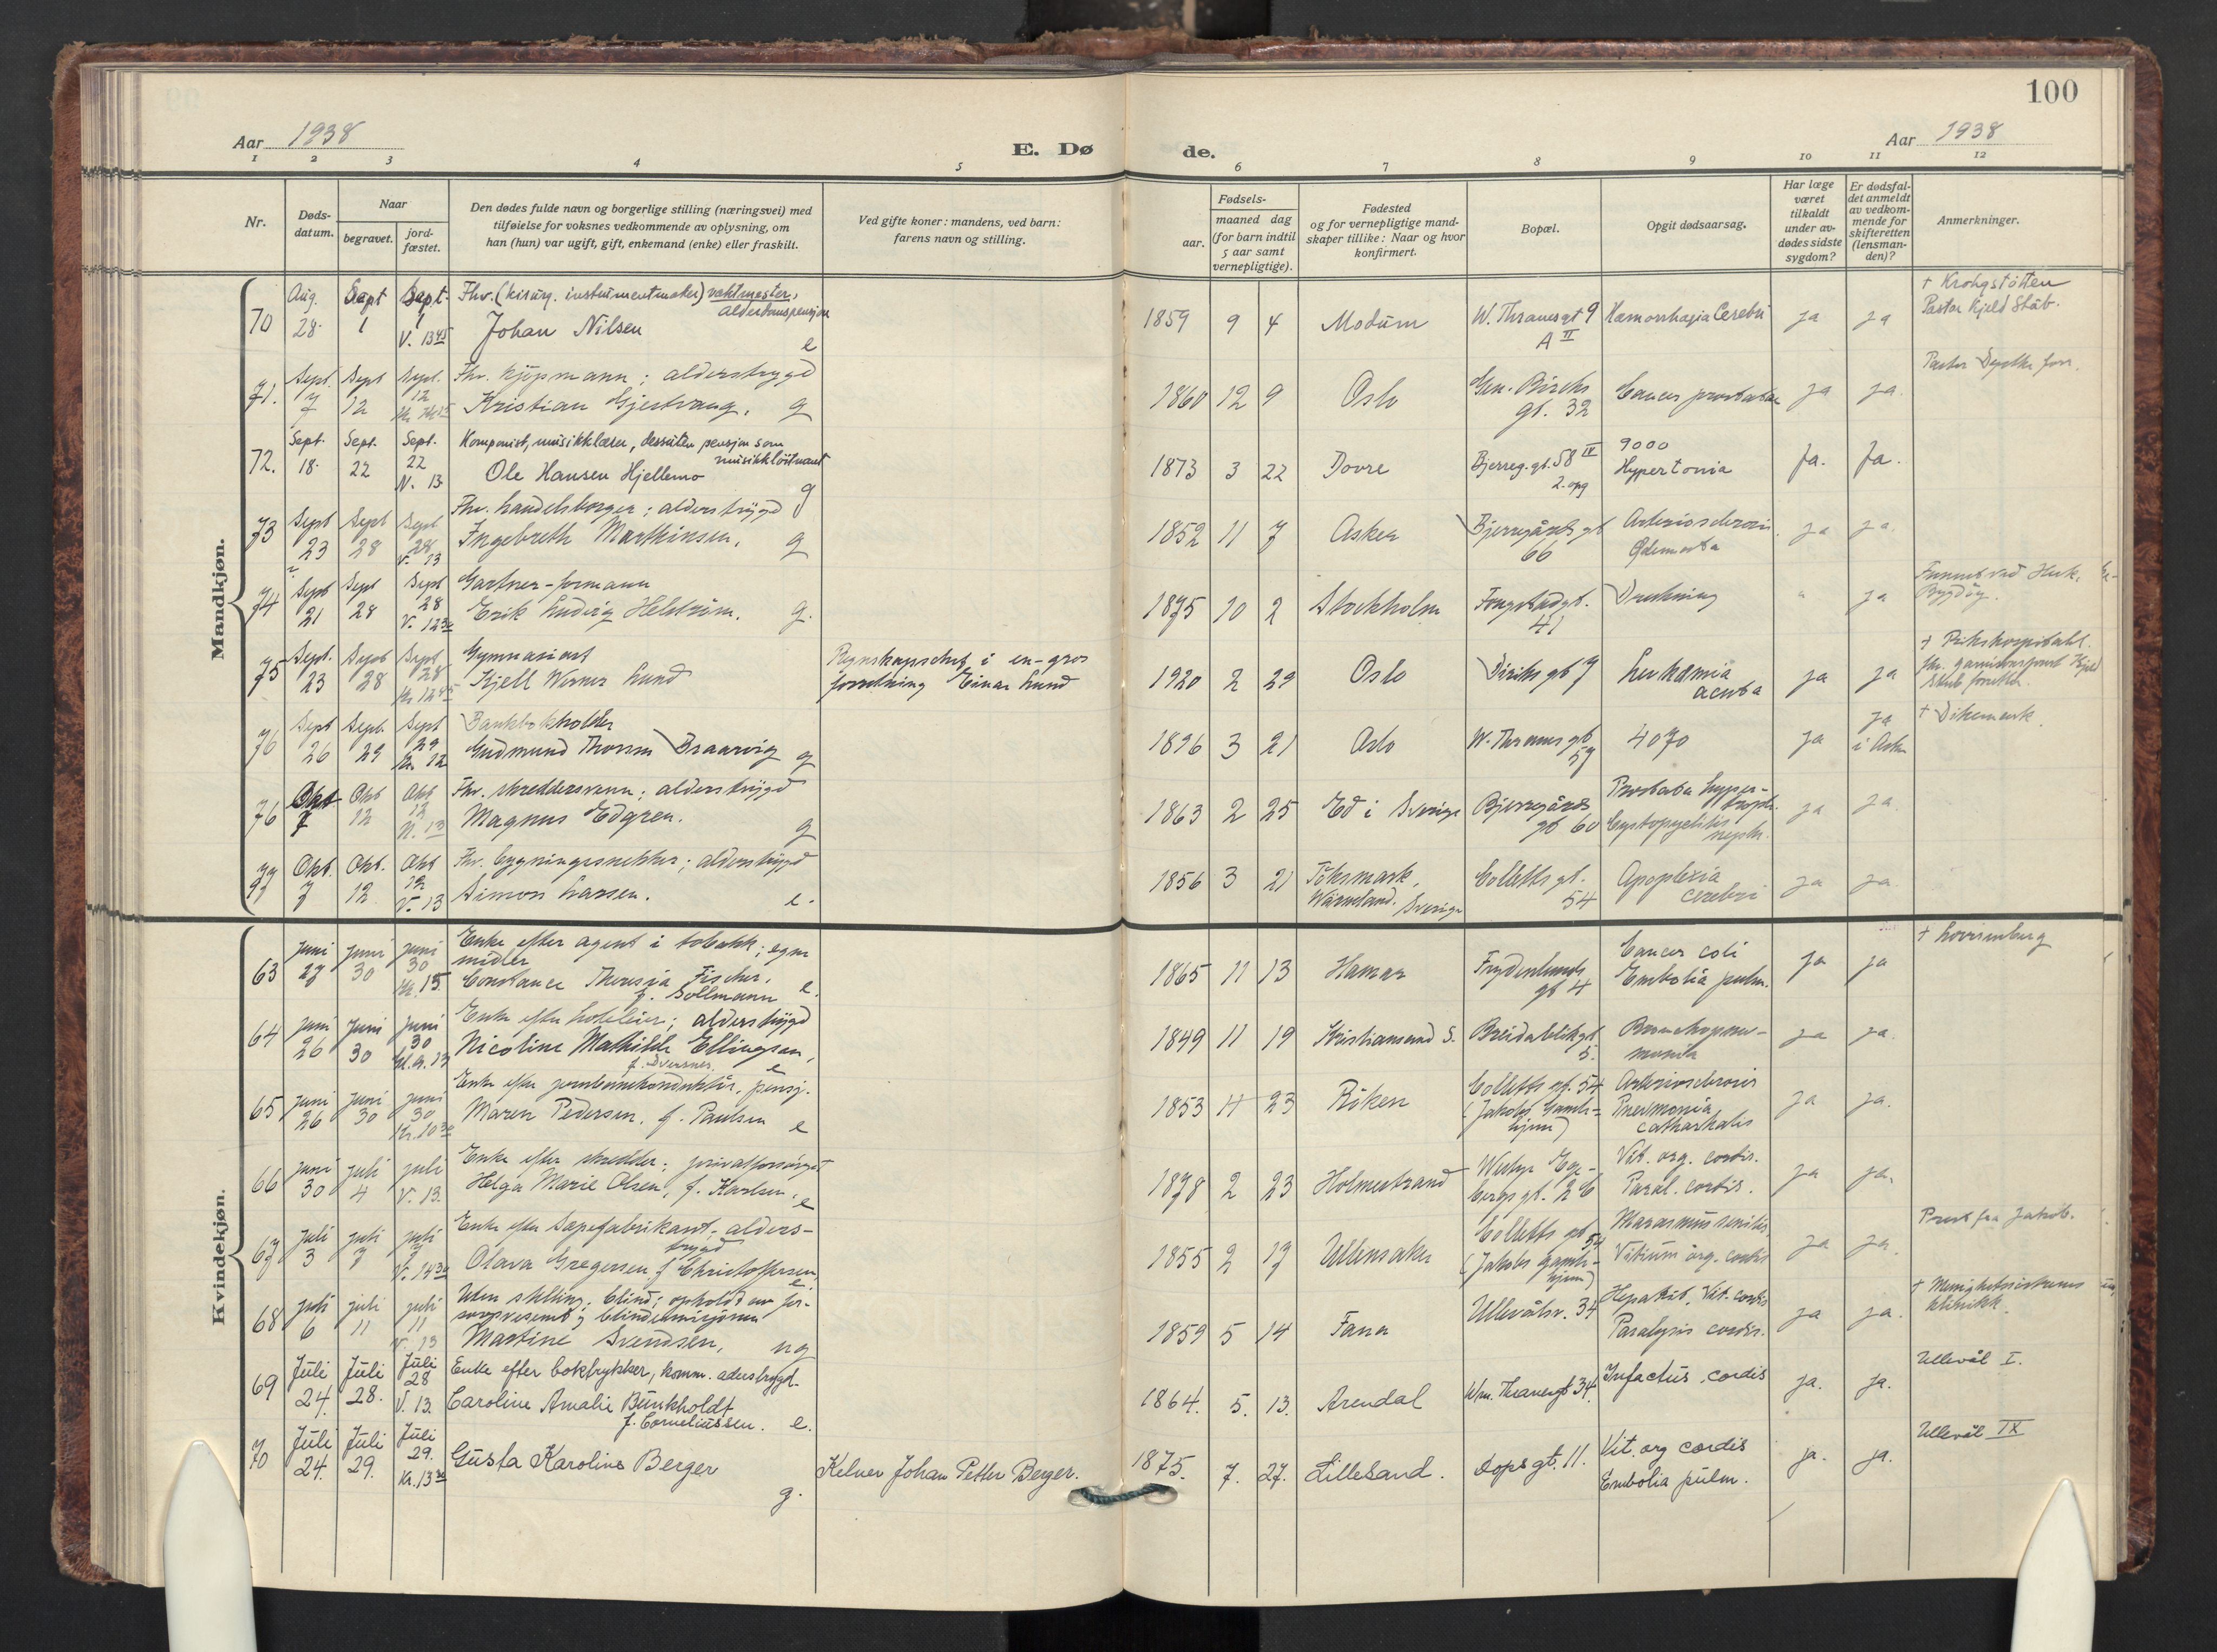 100
Aar 1938
E. Dø de.
Aar 1938
1 2 3 4 5 6 7 8 9 10 11 12
Nr.
Døds-
datum.
Naar
begravet.
jord-
fæstet.
Den dødes fulde navn og borgerlige stilling (næringsvei) med
tilføielse for voksnes vedkommende av oplysning, om
han (hun) var ugift, gift, enkemand (enke) eller fraskilt.
Ved gifte koner: mandens, ved barn:
farens navn og stilling.
Fødsels-
aar.
maaned dag
(for barn indtil
5 aar samt
vernepligtige).
Fødested
og for vernepligtige mand-
skaper tillike: Naar og hvor
konfirmert.
Bopæl.
Opgit dødsaarsag.
Har læge
været
tilkaldt
under av-
dødes sidste
sygdom?
Er dødsfal-
det anmeldt
av vedkom-
mende for
skifteretten
(lensman-
den)?
Anmerkninger.
Mandkjøn.
70 Aug. 28. Sept 1 Sept. 1 V. 13 45
Fhv. (kirurg. instrumentmaker) vaktmester,
alderdomspensjon
Johan Nilsen e
1859 9 4 Modum W. Thranesgt 9 A II Hæmorrhagia Cerebri ja ja
+ Krohgstøtten
Pastor Kjeld Stub.
71. Sept. 7 Sept 12 Sept. 12
Fhv. kjøpmann; alderstrygd
Kristian Gjestvang. g
1860 12 9 Oslo Gen. Birchs gt. 32 Cancer prostatae ja ja
72. Sept. 18. Sept. 22 Sept. 22 N. 13
Komponist, musikklærer, dessuten pensjon som
musikkløitnant
Ole Hansen Hjellemo g
1873 3 22 Dovre Bjerreg.gt. 58 IV 2. opg 9000 Hypertonia Ja. Ja.
73 Sept 23 Sept 28 Sept 28 V. 13
Fhv. handelsborger; alderstrygd
Ingebreth Marthinsen. g
1852 11 7 Asker Bjerregårds gt 66 Arteriosclerosis ja ja
74 Sept 21 Sept 28 Sept 28 V. 12 30
Gartner-formann
Erik Ludvig Helström. g.
1875 10 2 Stockholm Fougstadgt. 41 Drukning " ja
Funnet ved Huk,
Bygdøy.
75 Sept. 23 Sept 28 Sept 28 Kr 12 45
Gymnasiast
Kjell Werner Lund
Regnskapschef i en-gros
forretning Einar Lund
1920 2 29 Oslo Diriks gt 7 Leukæmia acuta ja ja
+ Rikshospitalet.
76 Sept 26 Sept. 29 Sept 29 Kr. 12
Bankbokholder
Gudmund Thorsen Braarvig g
1896 3 21 Oslo W. Thranes gt 57 4070 ja ja i Asker
+ Dikemark.
76 Okt 7 Okt 12 Okt 12 N. 13
Fhv. skreddersvenn; alderstrygd
Magnus Edgren. g
1863 2 25 Ed i Sverige Bjerregårds gt 60 Prostata hyper-
troph.
Cystopyelitis
neph. ja ja
77 Okt. 7 Okt. 12 Okt 12 V. 13
Fhv. bygningssnekker; alderstrygd
Simon Larsen. e.
1856 3 21 Töksmark, Wärmland. Sverige Colletts gt. 54 Apoplexia cerebri ja ja
Kvindekjøn.
63 juni 27 juni 30 juni 30 Kr. 15.
Enke efter agent i tobakk; egne
midler
Constance Theresia Fischer,
f. Sollmann e.
1865 11 13 Hamar Frydenlunds gt 4 Cancer coli Embolia pulm. ja ja
+ Lovisenberg
64 juni 26 juni 30 juni 30
Enke efter hoteleier; alderstrygd
Nicoline Mathilde Ellingsen,
e
1849 11 19 Kristiansand S. Breidablikgt. 5. Bronchopneu-
monia ja ja.
65 juni 26 juni 30 juni 30 Kr. 10 30
Enke efter jernbanekonduktør, pensj.
Maren Pedersen, f. Paulsen e
1853 11 23 Røken Colletts gt. 54
(Jakobs Gamle-
hjem) Arteriosclerosis
Pneumonia
catharhalis ja ja.
66 juni 30 juli 4 juli V. 13.
Enke efter skredder; privatforsørget
Helga Marie Olsen, f. Karlsen, e
1878 2 23 Holmestrand Westye Ege-
bergs gt. 2 b Vit. org. cordis.
Paral. cordis. ja ja.
67 juli 3 juli 7 juli 7 V. 14 30
Enke efter sæpefabrikant; alders-
trygd
Olava Gregersen f. Christoffersen, e
1855 2 17 Ullensaker Colletts gt 54
(Jakobs gamle-
hjem) Marasmus senilis,
Vitium org. cordis ja ja.
Prest fra Jakob.
68 juli 6 juli 11 juli 11 V. 13
Uten stilling, blind; ophold av for-
sorgsvesenet; blindemisjonen
Martine Svendsen, ug
1859 5 14 Fana Ullevålsv. 34 Hepatit. Vit. cordis
Paralysis cordis. ja ja.
+ Menighetssøstrenes
klinikk.
69 Juli 24. Juli 28. Juli 28 V. 13.
Enke efter boktrykker, komm. aderstrygd.
Caroline Amalie Bunkholdt
f. Corneliussen. e.
1864. 5. 13. Arendal Wm. Thranesgt 34. Infactus cordis ja. ja.
Ullevål I.
70 Juli 24. Juli 29. Juli 29. Kr. 13 30
Gusta Karoline Berger g.
Kelner Johan Petter Berger.
1875. 7. 27. Lillesand. Dops gt. 11. Vit. org cordis
Embolia pulm. ja. ja.
Ullevål IX